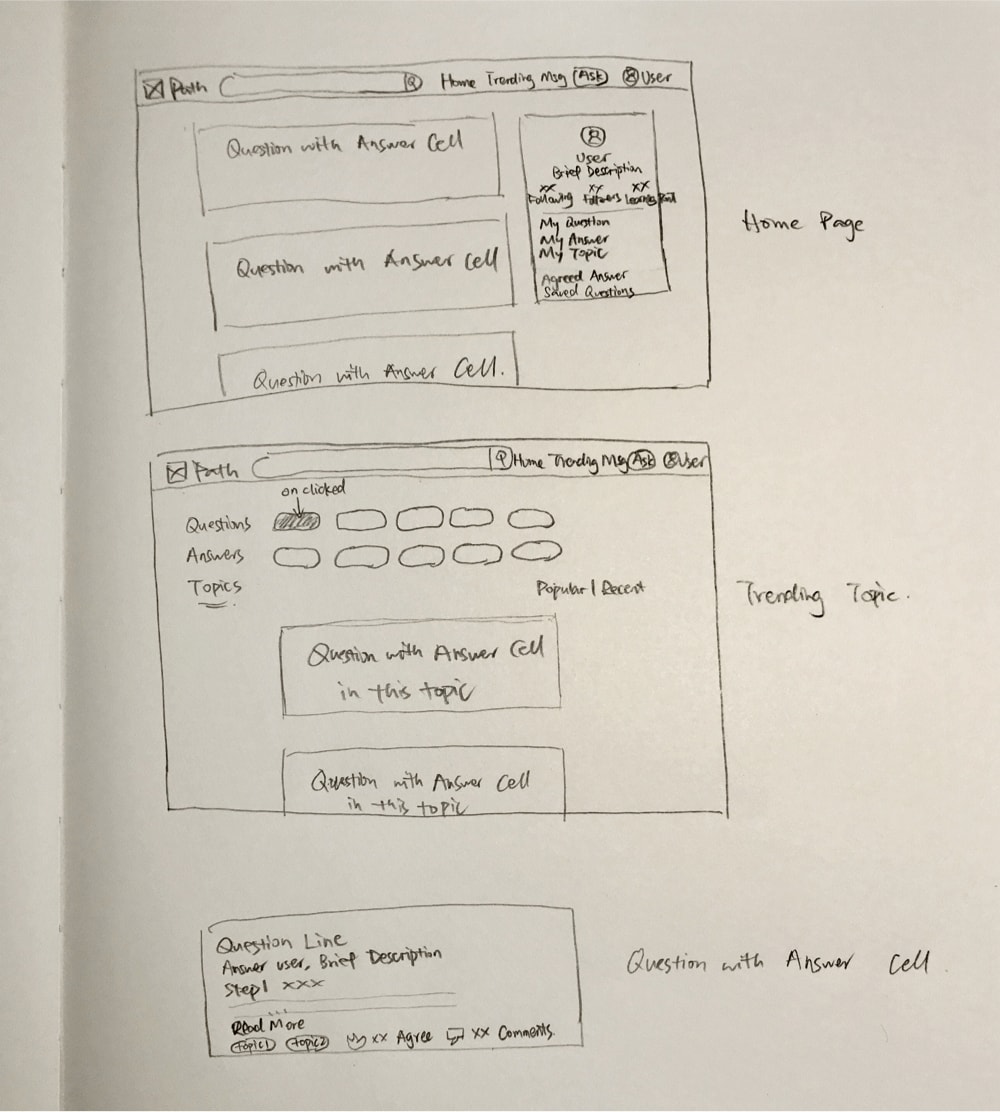 Path Home Trending Msg Ask User
Question with Answer Cell
Question with Answer Cell
Question with Answer Cell.
User
Brief Description
xx xy xx
Following Followers
My Question
My Answer
My Topic
Agreed Answer
Saved Questions
Home Page
Path Home Trending Msg Ask User
on clicked
Questions
Answers
Topics
Popular | Recent
Question with Answer Cell
in this topic
Question with Answer Cell
in this topic
Trending Topic.
Question Line
Answer user, Brief Description
Step1 xxx
...
Read More
Topic1 Topic2 xx Agree xx Comments
Question with Answer Cell.